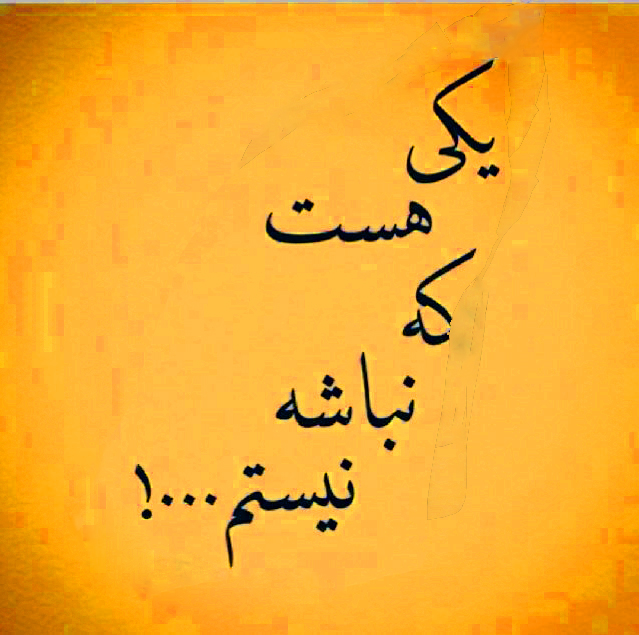 یکی
هست
که
نباشه
نیستم...!